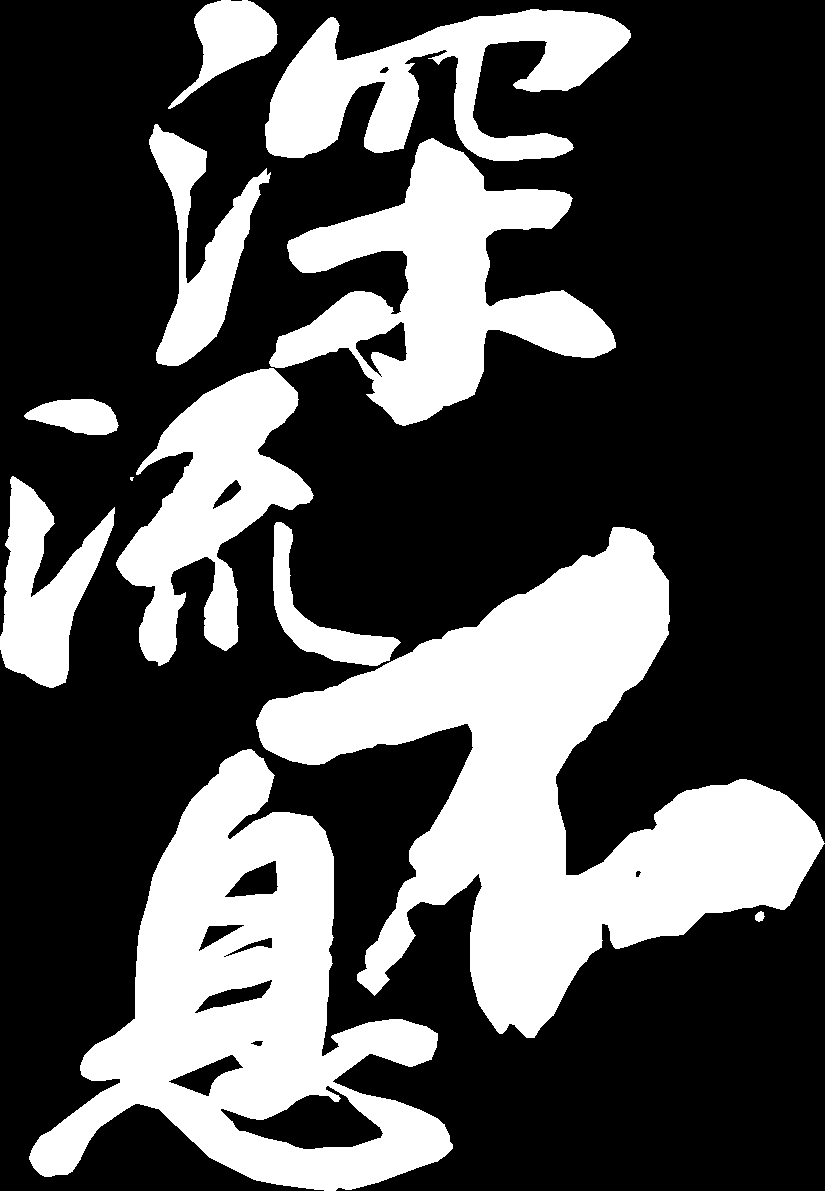 深流不息